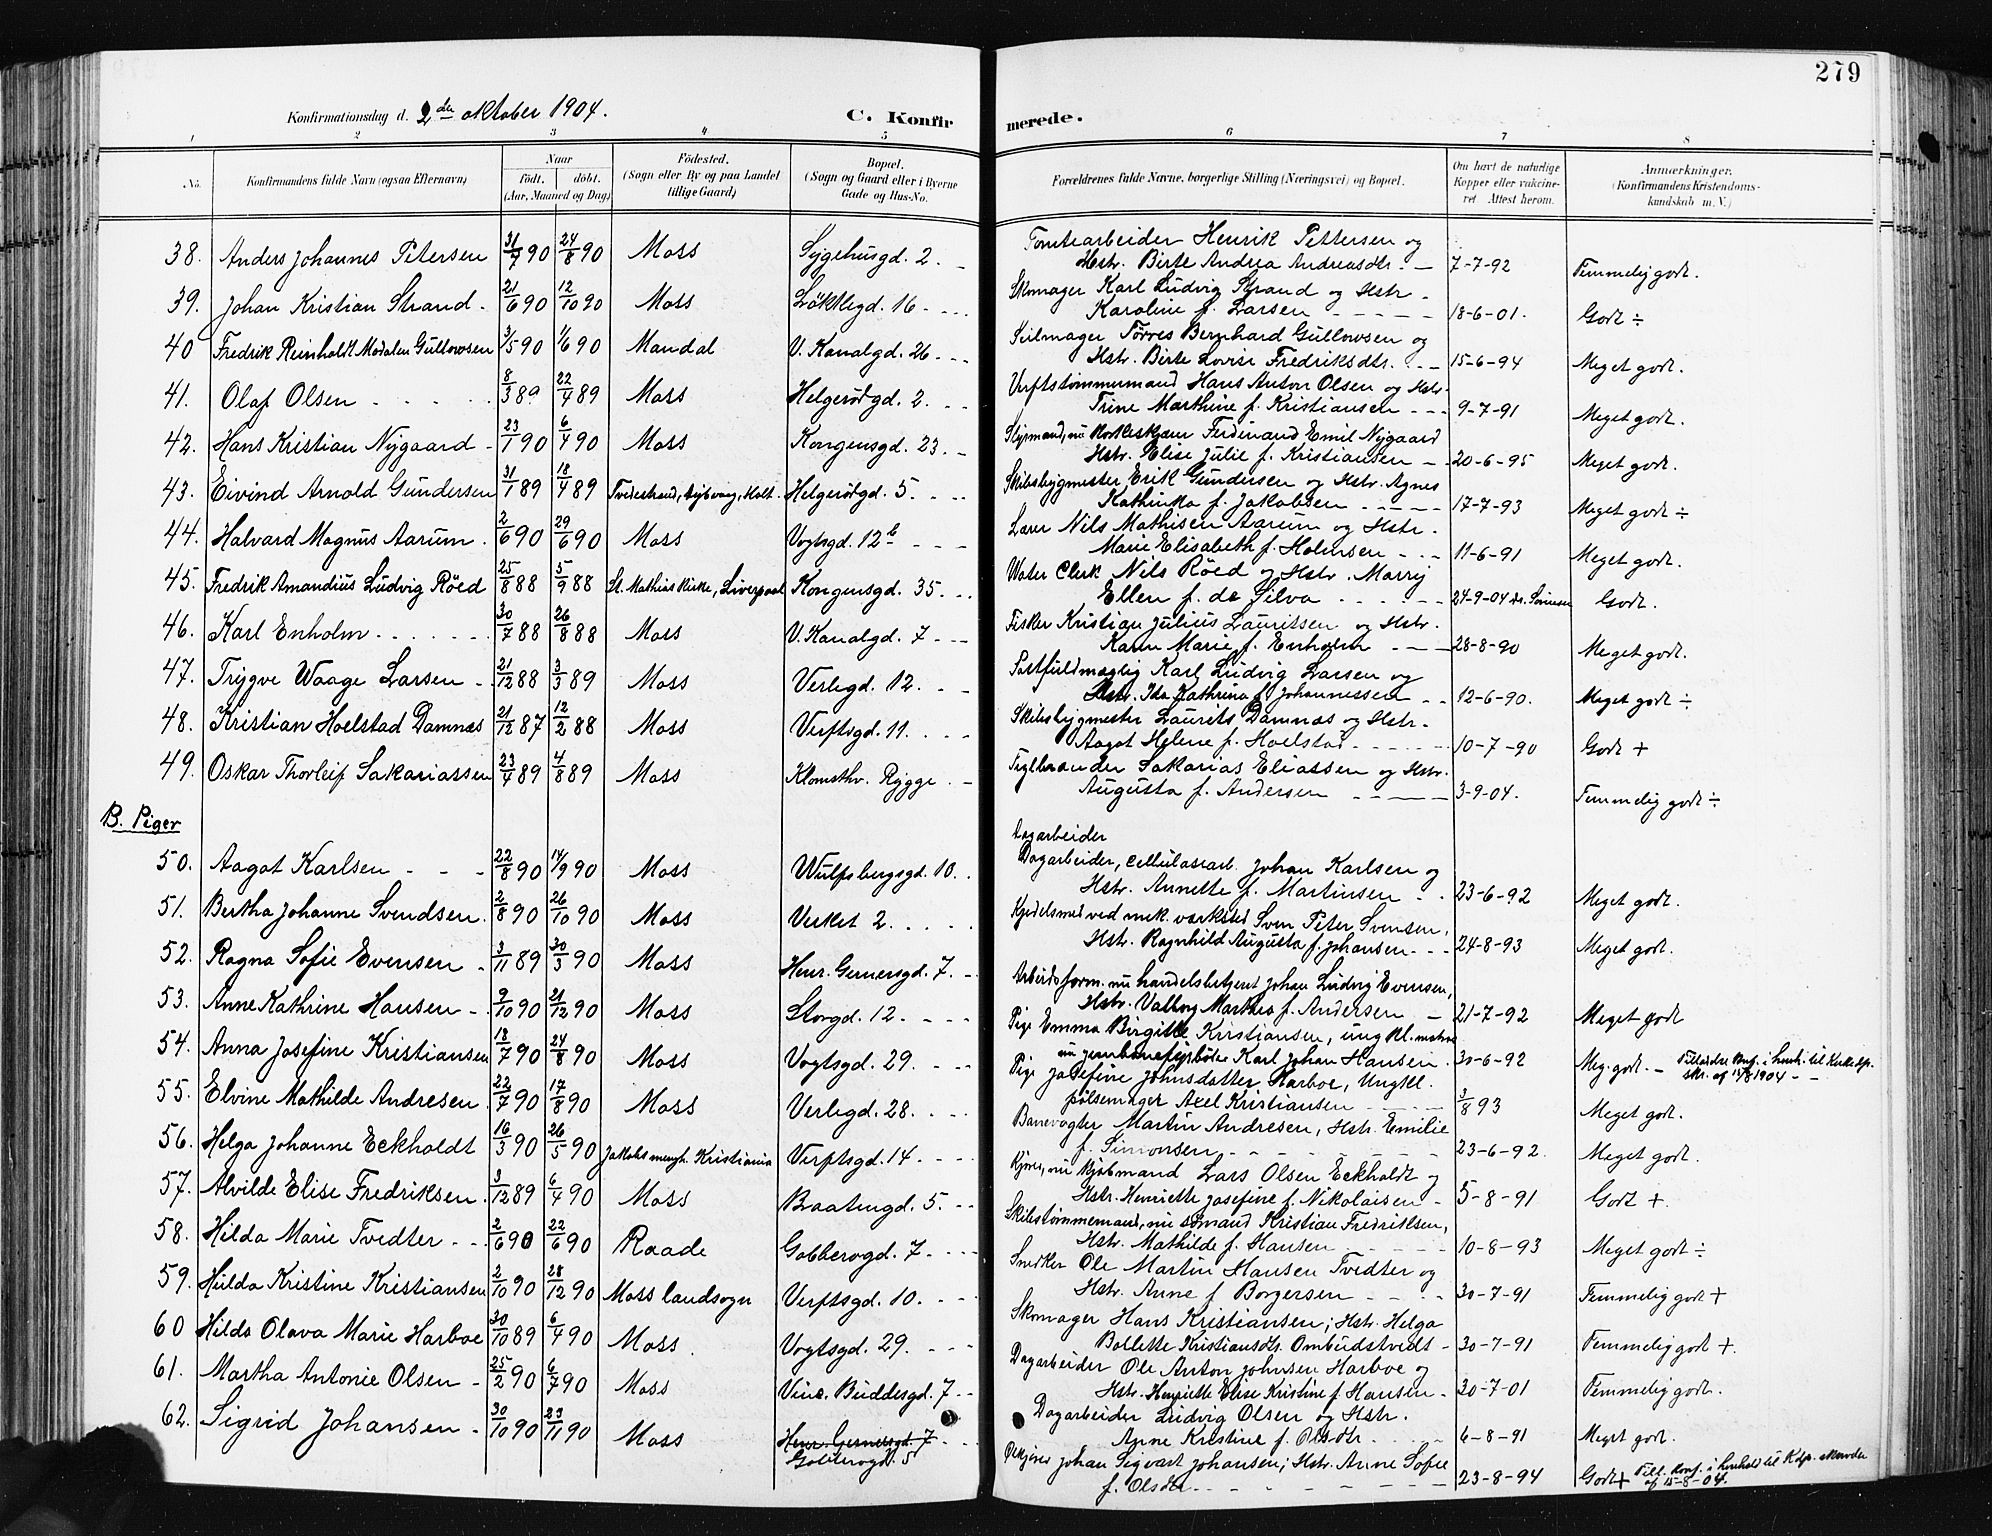 279
Konfirmationsdag d. 2den oktober 1904.
C. Konfirmerede.
1 2 3 4 5 6 7 8
No.
Konfirmandens fulde Navn (ogsaa Efternavn)
Naar
født. døbt.
(Aar, Maaned og Dag)
Födested.
(Sogn eller By og paa Landet
tillige Gaard)
Bopæl.
(Sogn og Gaard eller i Byerne
Gade og Hus-No.
Forældrenes fulde Navne, borgerlige Stilling (Næringsvei) og Bopæl.
Om havt de naturlige
Kopper eller vaccine-
ret Attest herom.
Anmærkninger.
(Konfirmandens Kristendoms-
kundskab m. V.)
38. Anders Johannes Petersen 31/7 90 24/8 90 Moss Sygehusgd. 2. Tomtearbeider Henrik Pettersen og
Hstr. Birte Andrea Andreasdtr. 7-7-92 Temmelig godt.
39. Johan Kristian Strand 21/6 90 12/10 90 Moss Løkkegd. 16. Skomager Karl Ludvig Strand og Hstr.
Karoline f. Larsen 18-6-01. Godt ÷
40 Fredrik Reinholdt Modalen Gullowsen 3/5 90 1/6 90 Mandal V. Kanalgd. 26. Seilmager Tørres Bernhard Gullowsen og
Hstr. Birte Lovise Fredriksdtr. 15-6-94 Meget godt.
41. Olaf Olsen 8/3 89 22/4 89 Moss Helgerødgd. 2. Verftstømmermand Hans Anton Olsen og Hstr.
Trine Marthine f. Kristiansen 9-7-91 Meget godt.
42. Hans Kristian Nygaard 23/1 90 6/4 90 Moss Kongensgd. 23. Styrmand, nu Ferdinand Emil Nygaard
Hstr. Elise Julie f. Kristiansen 20-6-95 Meget godt.
43. Eivind Arnold Gundersen 31/1 89 18/4 89 Tvedestrand, Dybvaag, Holt. Helgerødgd. 5. Skibsbygmester Erik Gundersen og Hstr. Agnes
Kathinka f. Jakobsen 17-7-93 Meget godt ÷
44. Halvard Magnus Aarum 2/6 90 29/6 90 Moss Vogtsgd. 12b Lærer Nils Mathisen Aarum og Hstr.
Marie Elisabeth f. Holmsen 11-6-91 Meget godt.
45. Fredrik Amandius Ludvig Röed 25/8 88 5/9 88 St. Mathias Kirke, Liverpool Kongensgd. 35. Water Clerk Nils Röed og Hstr. Marry
Ellen f. de Silva 24-9-04 Dr. Sørensen Godt.
46. Karl Enholm 30/7 88 26/8 88 Moss V. Kanalgd. 7 Fisker Kristian Julius Lauritsen og Hstr.
Karen Marie f. Enholm 28-8-90 Meget godt.
47. Trygve Waage Larsen 21/12 88 3/3 89 Moss Verlegd. 12. Postfuldmægtig Karl Ludvig Larsen og
Hstr. Ida Kathrina f. Johannessen 12-6-90. Meget godt ÷
48. Kristian Hoelstad Damnæs 21/12 87 12/2 88 Moss Verftsgd. 11. Skibsbygmester Laurits Damnæs og Hstr.
Aagot Helene f. Hoelstad 10-7-90 Godt +
49. Oskar Thorleif Sakariassen 23/4 89 4/8 89 Moss Klomsthv. Rygge Teglbrænder Sakarias Eliassen og Hstr.
Augusta f. Andersen 3-9-04. Temmelig godt ÷
B. Piger
Dagarbeider
50. Aagot Karlsen 22/8 90 14/9 90 Moss Wulfsbergsgd. 10. Dagarbeider, cellulosearb. Johan Karlsen og
Hstr. Annette f. Martinsen 23-6-92 Meget godt.
51. Bertha Johanne Svendsen 2/8 90 26/10 90 Moss Verket 2. Kjedelsmed ved mek. værksted Sven Peter Svensen,
Hstr. Ragnhild Augusta f. Johansen 24-8-93 Meget godt.
52. Ragna Sofie Evensen 3/11 89 30/3 90 Moss Henr. Gernersgd. 7. Arbeidsform. nu handelsbetjent Johan Ludvig Evensen,
Hstr. Valborg Marthea f. Andersen 21-7-92 Meget godt
53. Anne Kathrine Hansen 9/10 90 21/12 90 Moss Storgd. 12. Pige Emma Birgitte Kristiansen, ung kl. matros
nu jernbanefyrbøter Karl Johan Hansen. 30-6-92 Meg. godt. Tilstedes konf. i henh. til Kirkedp.
skr. af 15/8 1904
54. Anna Josefine Kristiansen 13/7 90 24/8 90 Moss Vogtsgd. 29. Pige Josefine Johnsdatter Harboe, Ungkl.
pølsemager Axel Kristiansen 3/8 93 Meget godt.
55. Elvine Mathilde Andresen 22/7 90 17/8 90 Moss Verlegd. 28. Banevogter Martin Andresen, Hstr. Emilie
f. Simonsen 23-6-92. Meget godt.
56. Helga Johanne Eckholdt 16/3 90 26/5 90 Jakobs mengh. Kristiania Verftsgd. 14. Kjører, nu kjøbmand Lars Olsen Eckholdt og
Hstr. Henriette Josefine f. Nikolaisen 5-8-91 Godt +.
57. Alvilde Elise Fredriksen 3/12 89 6/4 90 Moss Braatengd. 5. Skibstømmemand, nu sømand Kristian Fredriksen,
Hstr. Mathilde f. Hansen 10-8-93 Meget godt ÷
58. Hilda Marie Tvedter 2/6 90 22/6 90 Raade Gobberogd. 7 Snedker Ole Martin Hansen Tvedter og
Hstr. Anne f Borgersen 30-7-91 Temmelig godt +
59. Hilda Kristine Kristiansen 2/10 90 28/12 90 Moss landsogn Verftsgd. 10. Skomager Hans Kristiansen; Hstr. Helga
Bollette Kristiansdtr. Ombudstvedt 30-7-91 Temmelig godt +.
60 Hilda Olava Marie Harboe 30/10 89 6/4 90 Moss. Vogtsgd. 29. Dagarbeider Ole Anton Johnsen Harboe og
Hstr. Henriette Elise Kristine f. Hansen 30-7-01 Temmelig godt.
61. Martha Antonie Olsen 25/2 90 6/7 90 Moss Vinc. Buddesgd. 7 Dagarbeider Ludvig Olsen og Hstr.
Anne Kristine f. Olsdtr. 6-8-91 Meget godt.
62. Sigrid Johansen 30/10 90 23/11 90 Moss Henr. Gernersgd. 7
Gobberogd. 5 Johan Sigvart Johansen; Hstr. Anne Sofie
f. Olsdtr. 23-8-94 Godt + Till. konf. i henhold til Kdp. skrivelse
af 15-8-04.